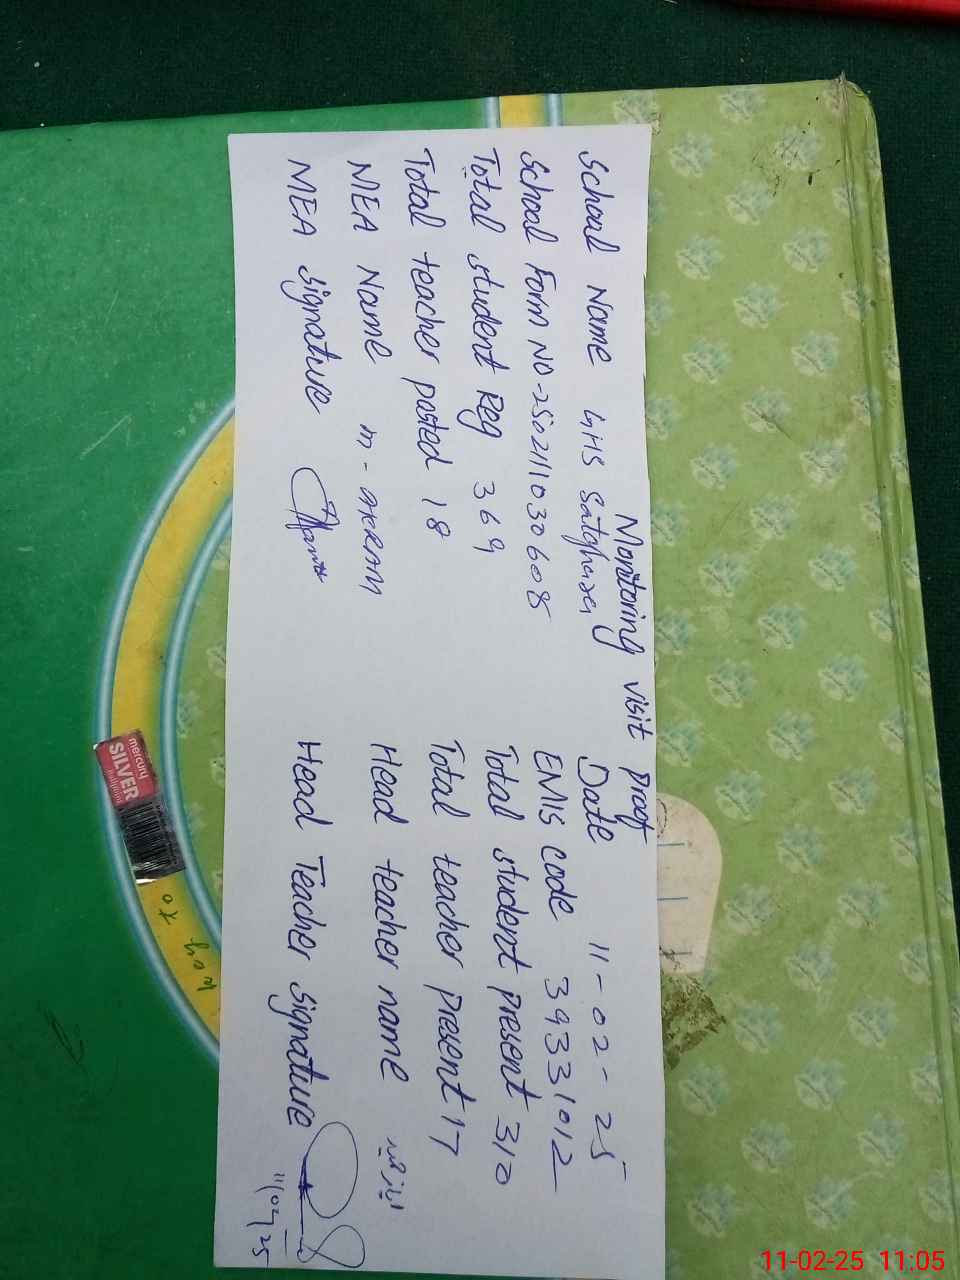 Monitoring visit proof
School Name GHS Satghara Date 11-02-25
School Form NO-250211030608 EMIS code 39331012
Total student Reg 369 Total student present 310
Total teacher posted 18 Total teacher present 17
MEA Name M-AKRAM Head teacher name
MEA signature Head Teacher signature
11/02/25
mercury
SILVER
11-02-25 11:05